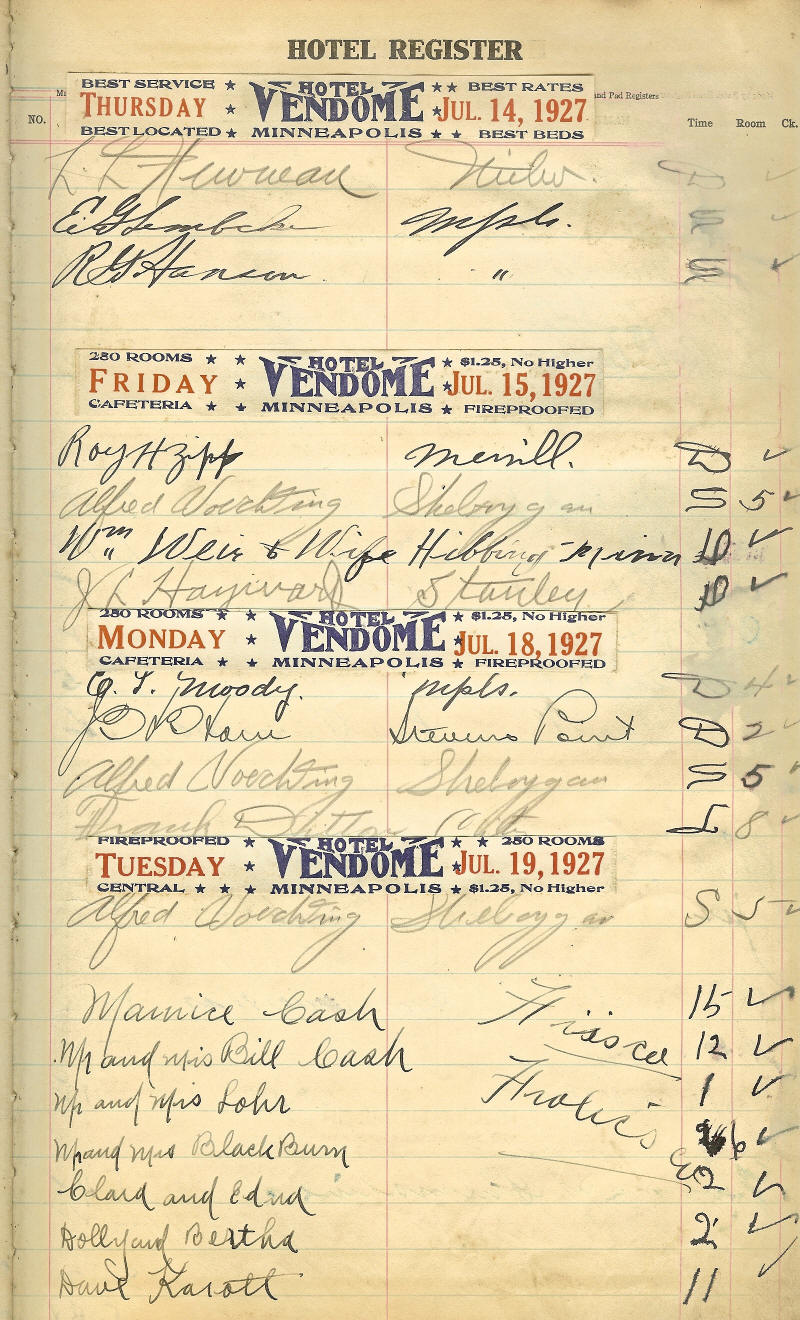 HOTEL REGISTER
and Pad Registers
NO. Time Room Ck.
BEST SERVICE ★ HOTEL ★★ BEST RATES
THURSDAY ★ VENDOME ★ JUL. 14, 1927
BEST LOCATED ★ MINNEAPOLIS ★ ★ BEST BEDS
L L Newman Milw. D ✓
E G Lembcke Mpls. S ✓
R G Hanson " S ✓
280 ROOMS ★ ★ HOTEL ★ $1.25, No Higher
FRIDAY ★ VENDOME ★ JUL. 15, 1927
CAFETERIA ★ ★ MINNEAPOLIS ★ FIREPROOFED
Roy H Zipp Merrill. D ✓
Alfred Voechting Sheboygan S 5 ✓
Wm Weir & Wife Hibbing Minn D ✓
J L Hayward Stanley D ✓
280 ROOMS ★ ★ HOTEL ★ $1.25, No Higher
MONDAY ★ VENDOME ★ JUL. 18, 1927
CAFETERIA ★ ★ MINNEAPOLIS ★ FIREPROOFED
Moody. Mpls. D 4 ✓
Stevens Point D 2 ✓
Alfred Voechting Sheboygan S 5 ✓
Frank L 8 ✓
FIREPROOFED ★ HOTEL ★ ★ 280 ROOMS
TUESDAY ★ VENDOME ★ JUL. 19, 1927
CENTRAL ★ ★ ★ MINNEAPOLIS ★ $1.25, No Higher
Alfred Voechting Sheboygan S 5 ✓
Maurice Cash Frisco 15 ✓
Mr and Mrs Bill Cash 12 ✓
Mr and Mrs Lohr Frolics 1 ✓
Mr and Mrs BlackBurn 6 ✓
Clard and Edna Co 2 ✓
Dolly and Bertha 2 ✓
Dave Karott 11 ✓